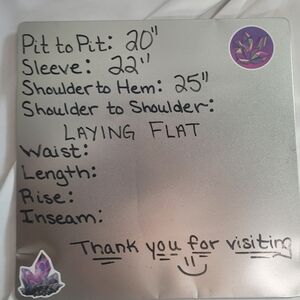 Pit to Pit: 20"
Sleeve: 22"
Shoulder to Hem: 25"
Shoulder to Shoulder:
LAYING FLAT
Waist:
Length:
Rise:
Inseam:
Thank you for visiting